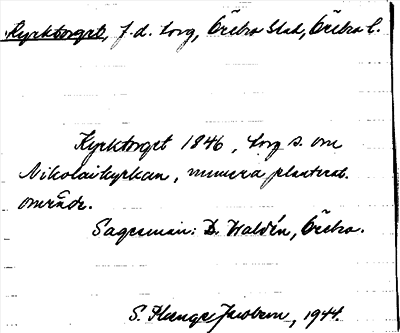 Kyrktorget, f.d. torg, Örebro stad, Örebro l.
Kyrktorget 1846, torg s. om
Nikolaikyrkan, numera planterat
område.
Sagesman: B. Waldén, Örebro.
S. Plange Jacobson, 1944.